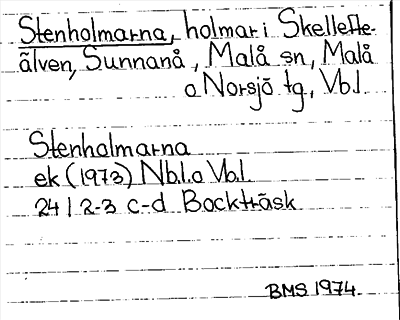 Stenholmarna, holmar i Skellefte-
älven, Sunnanå, Malå sn, Malå
o Norsjö tg., Vb.l.
Stenholmarna
ek (1973) Nb.l. o Vb.l.
24 I 2-3 c-d Bockträsk
BMS 1974